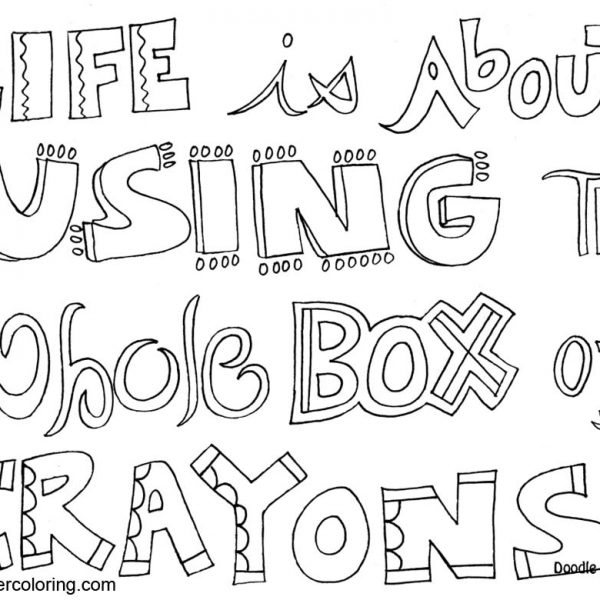 LIFE is About
USING T
whole BOX of
CRAYONS
ercoloring.com
Doodle